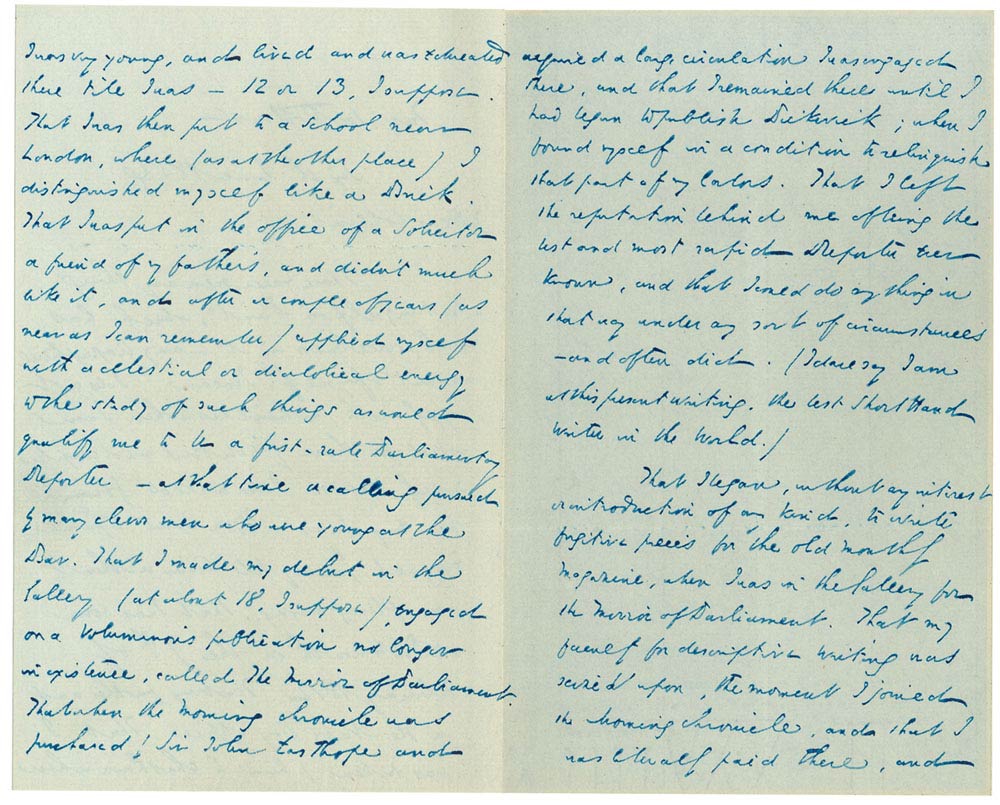 I was very young, and lived and was educated
there till I was — 12 or 13, I suppose.
That I was then put to a school near
London, where (as at the other place) I
distinguished myself like a Brick.
That I was put in the office of a Solicitor
a friend of my father's, and didn't much
like it, and after a couple of years (as
near as I can remember) applied myself
with a celestial or diabolical energy
to the study of such things as would
qualify me to be a first-rate Parliamentary
Reporter — at that time a calling pursued
by many clever men who were young at the
Bar. That I made my debut in the
Gallery (at about 18, I suppose), engaged
on a voluminous publication no longer
in existence, called The Mirror of Parliament.
That when the Morning Chronicle was
purchased by Sir John Easthope and
acquired a large circulation I was engaged
there, and that I remained there until I
had begun to publish Pickwick; when I
found myself in a condition to relinquish
that part of my labors. That I left
the reputation behind me of being the
best and most rapid Reporter ever
known, and that I could do anything in
that way under any sort of circumstances
— and often did. (I dare say I am
at this present writing, the best Short Hand
Writer in the World.)
That I began, without any interest
or introduction of any kind, to write
fugitive pieces for the old monthly
Magazine, when I was in the Gallery for
the Mirror of Parliament. That my
faculty for descriptive writing was
seized upon, the moment I joined
the Morning Chronicle, and that I
was liberally paid there, and